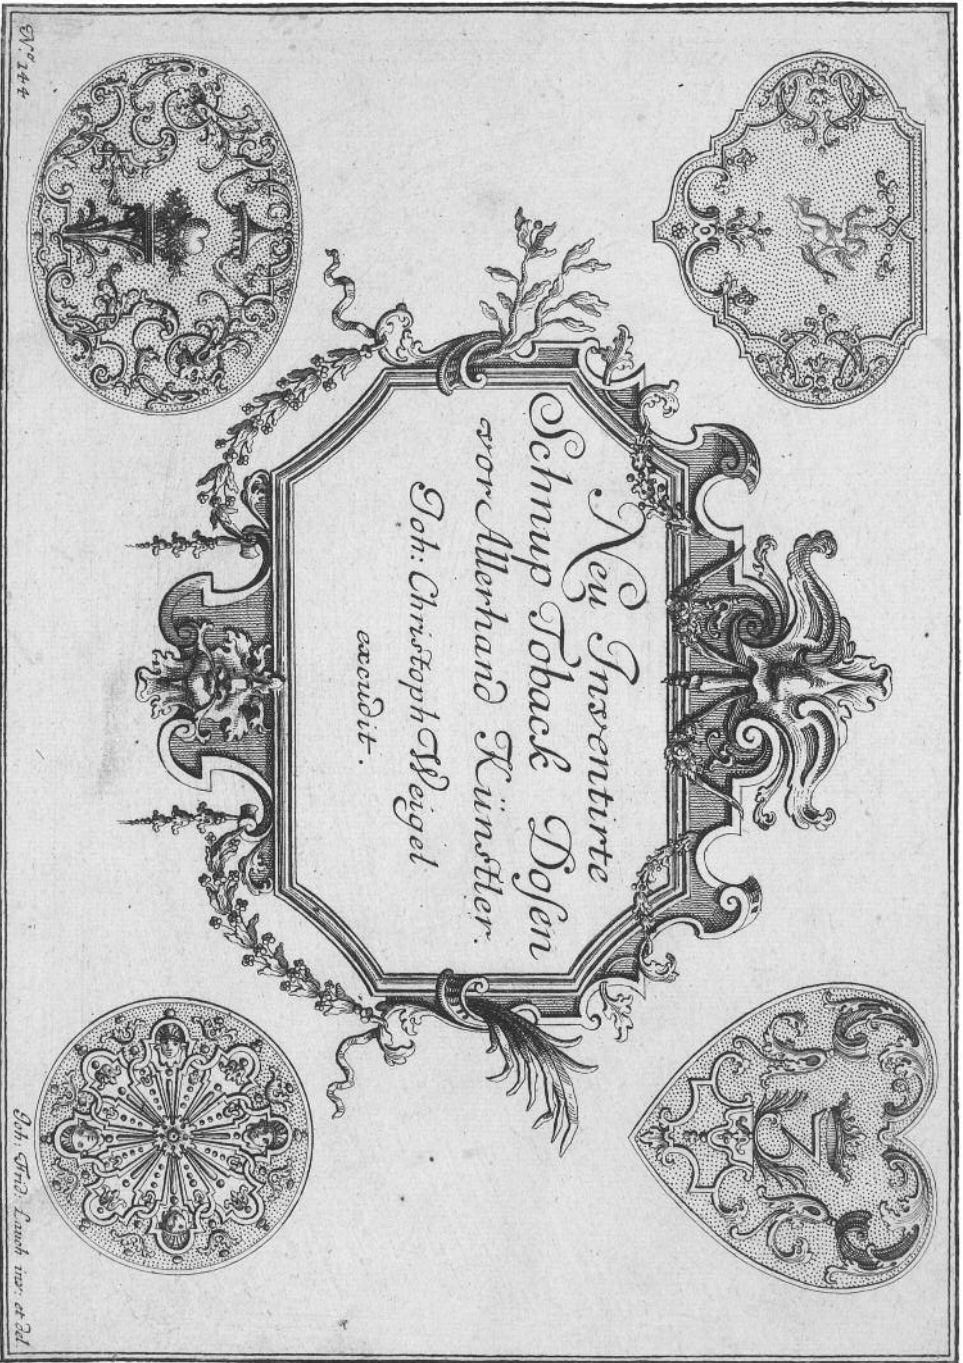 Neu Inventirte
Schnup Toback Dosen
vor Allerhand Künstler.
Joh: Christoph Weigel
excudit.
N.º 144
Joh. Frid. Lauch inv: et del.